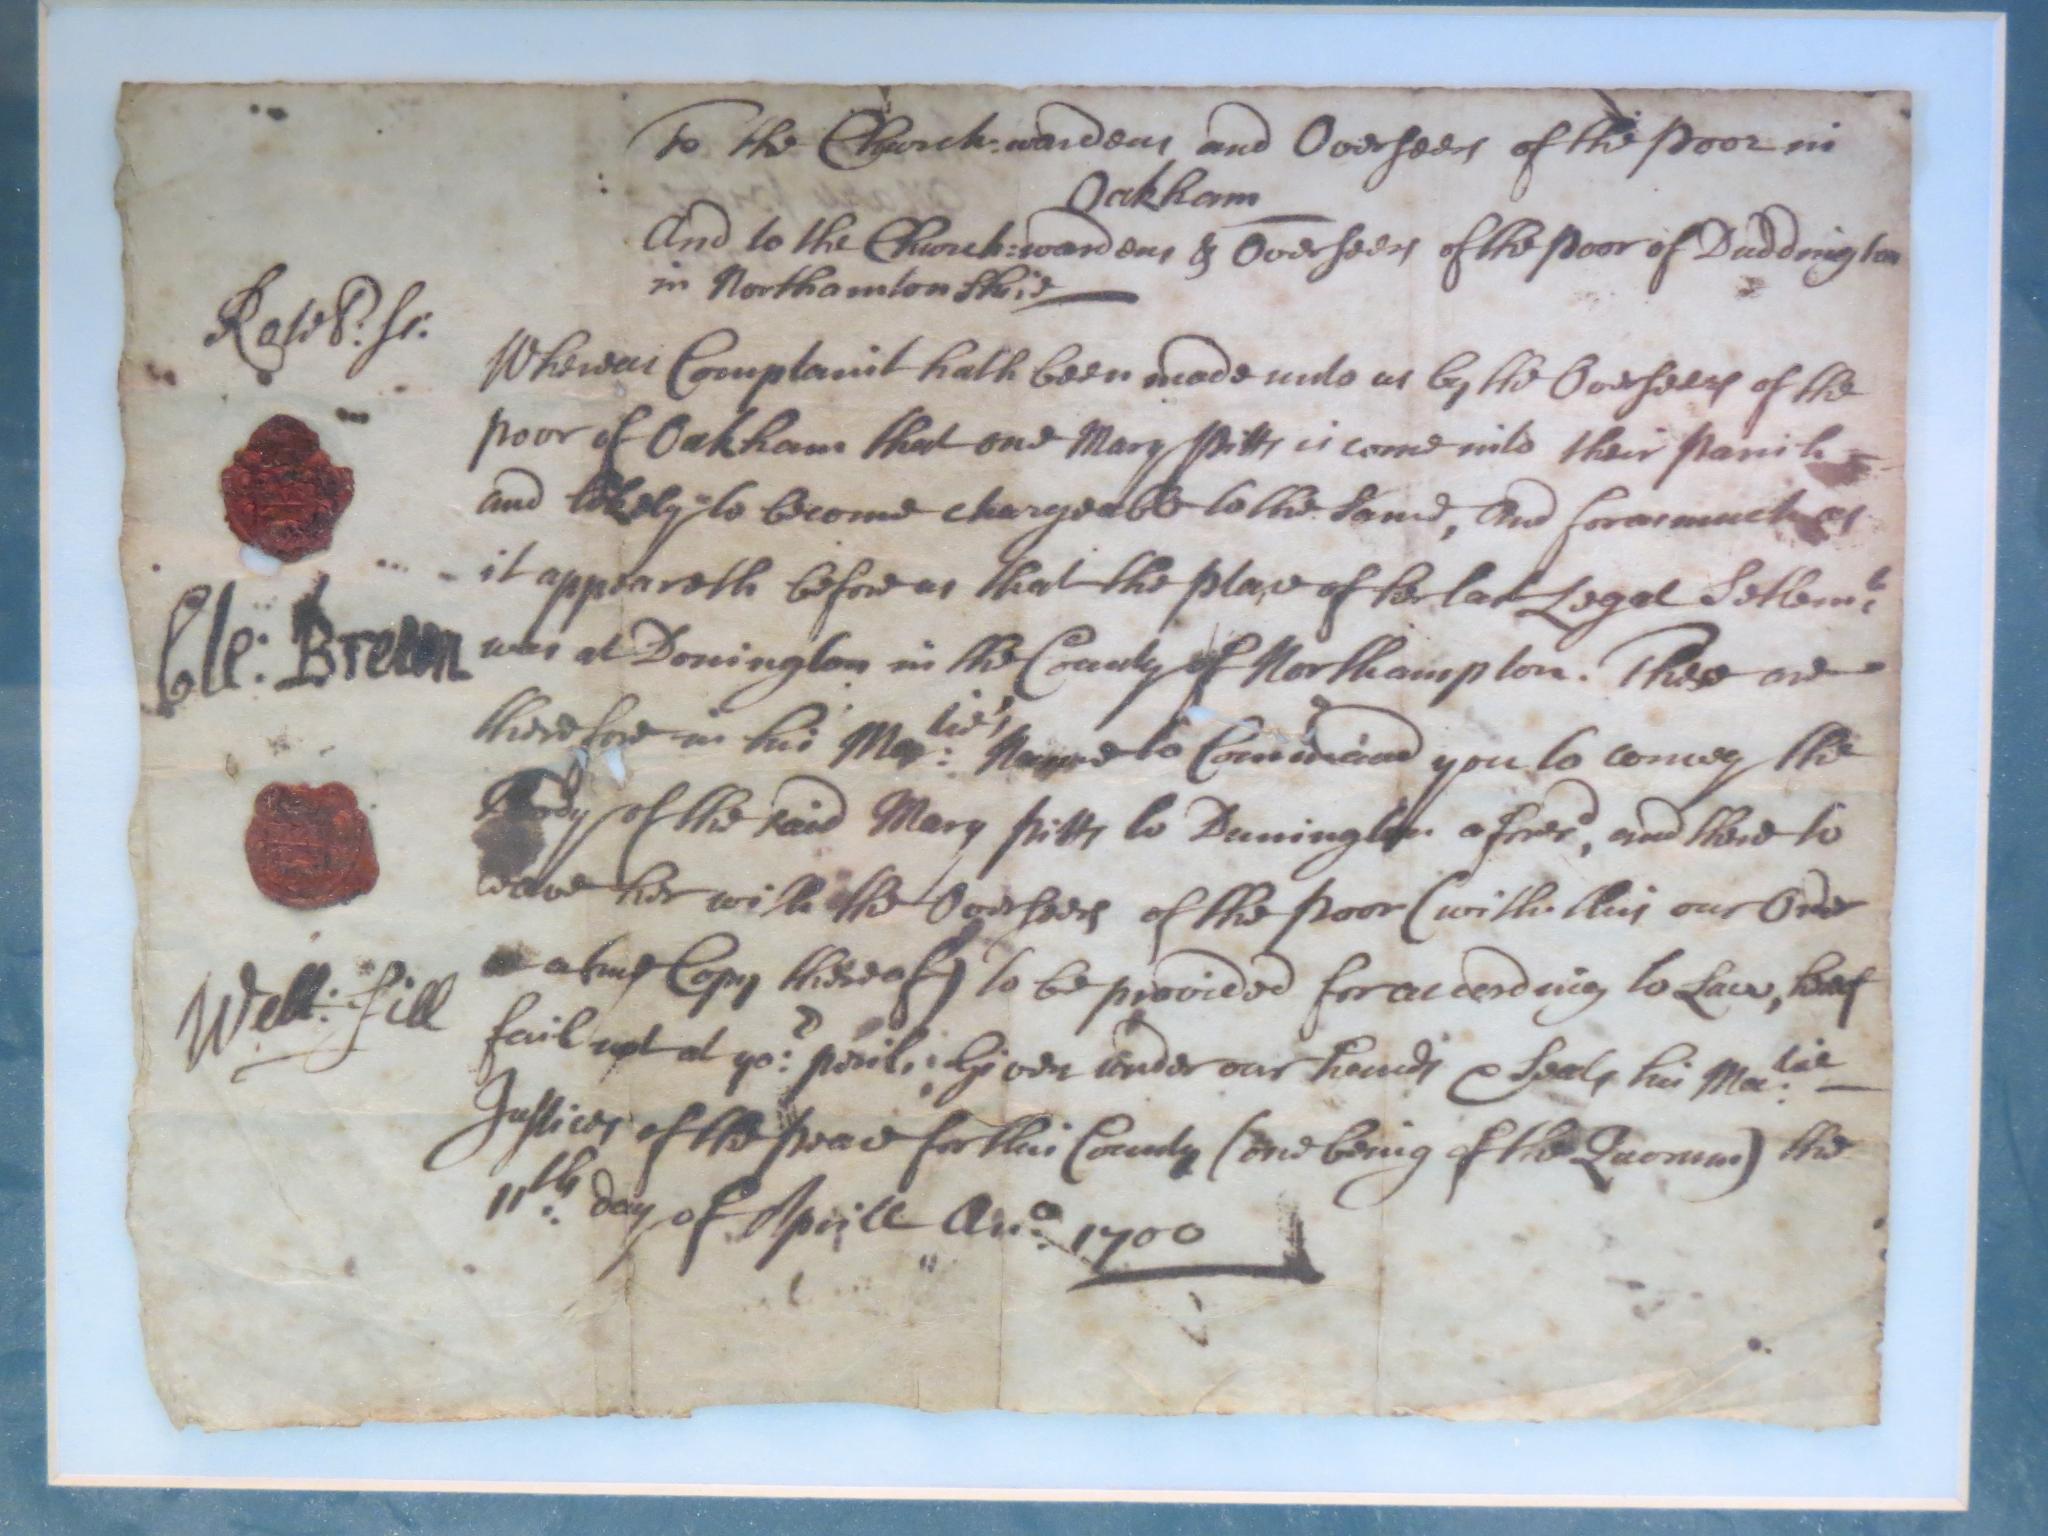 To the Church:wardens and Overseers of the poor in
Oakham
And to the Church:wardens & Overseers of the poor of Duddington
in Northamton Shire
Whereas Complaint hath been made unto us by the Overseers of the
poor of Oakham that one Mary Pitts is come into their parish
and likely to become chargeable to the same, And forasmuch as
it appeareth before us that the place of her last Legal Settlemt
was at Donington in the County of Northampton. These are
therefore in his Ma:ties Name to Command you to convey the
Body of the said Mary Pitts to Dunington aforesd, and there to
leave her with the Overseers of the poor (with this our Order
or a true Copy thereof) to be provided for according to Law, hereof
fail not at yor: peril; Given under our hands & Seals his Ma:tie
Justices of the peace for this County (one being of the Quorum) the
11th: day of Aprill Ano: 1700
Rutld. Ss:
Cle: Brewn
Well: Fill